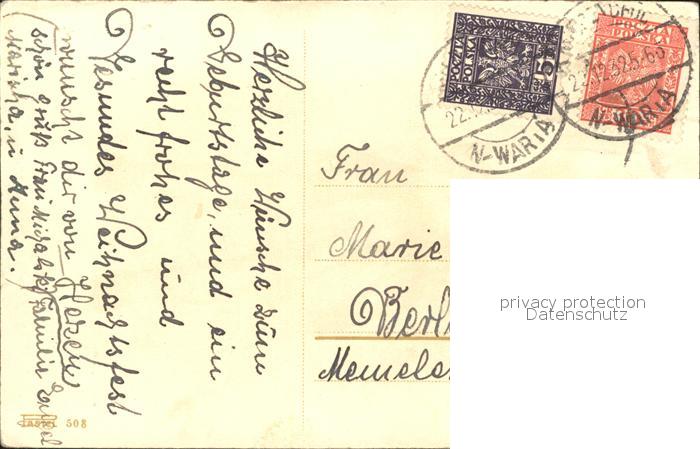 Herzliche Wünsche zum
Geburtstage, und ein
recht frohes und
Gesundes Weihnachtsfest
wünscht dir von Herzen
schön gruß Frau Michalski Familie
Maricha, u Anna.
POCZTA
POLSKA
15
POCZTA
POLSKA
22.12.32
N-WARIA
22.12.32
N-WARIA
Frau
Marie
Berl
Memele
privacy protection
Datenschutz
508